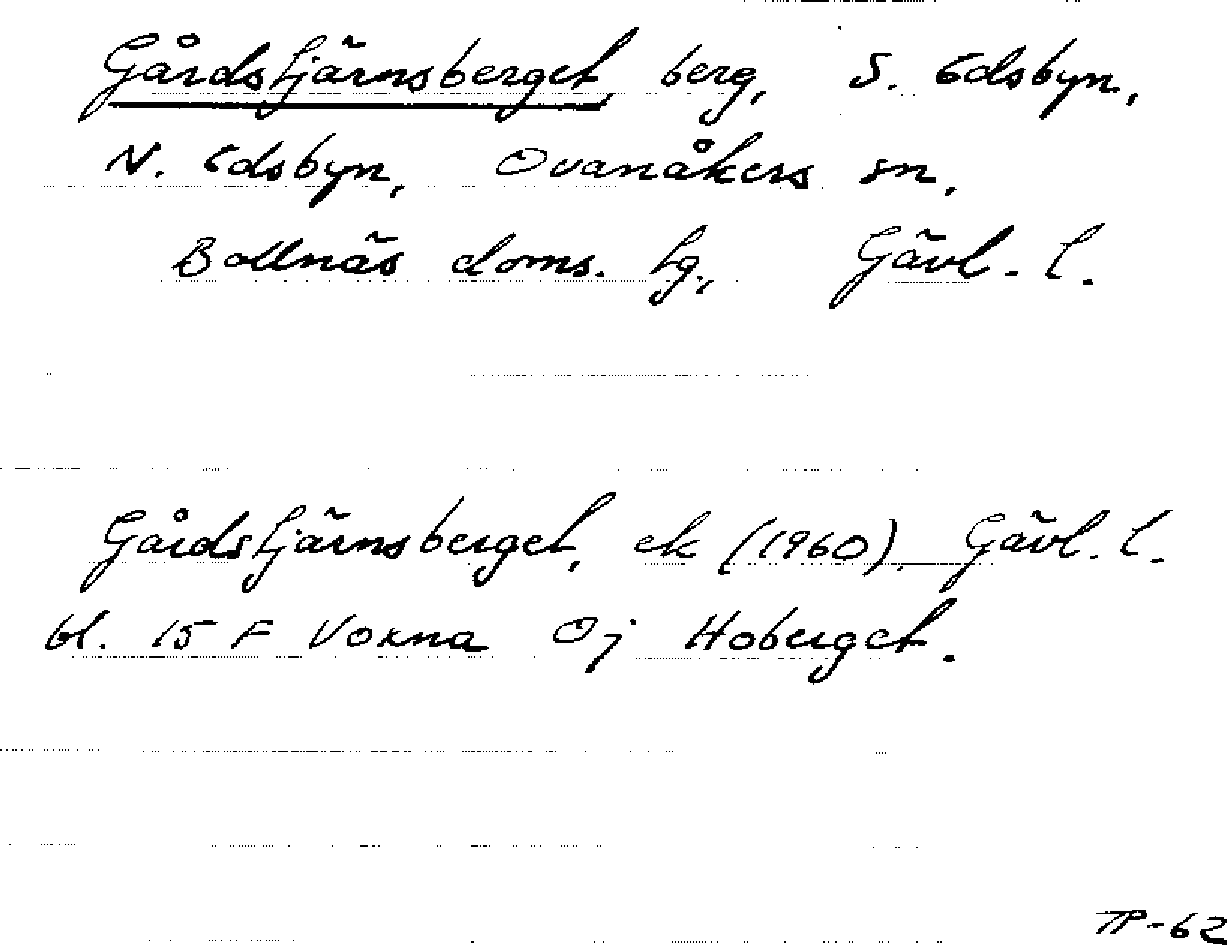 Gårdstjärnsberget, berg, S. Edsbyn,
N. Edsbyn, Ovanåkers sn,
Bollnäs doms. tg., Gävl. l.
Gårdstjärnsberget, ek (1960). Gävl. l.
bl. 15 F Voxna Öj Hoberget.
TP-62